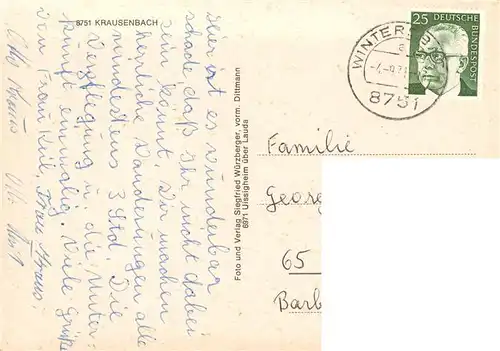 8751 KRAUSENBACH
Hier ist es wunderbar
schade, daß Ihr nicht dabei
sein könnt. Wir machen
herrliche Wanderungen alle
mindestens 3 Std. Die
Verpflegung u. die Unter-
kunft einmalig. Viele Grüße
von Frau Kiel, Frau Kraus,
Otto Kraus
Foto und Verlag Siegfried Würzberger, vorm. Dittmann
6971 Uissigheim über Lauda
WINTERS
8751
25 DEUTSCHE
BUNDESPOST
Familie
Georg
65
Barb